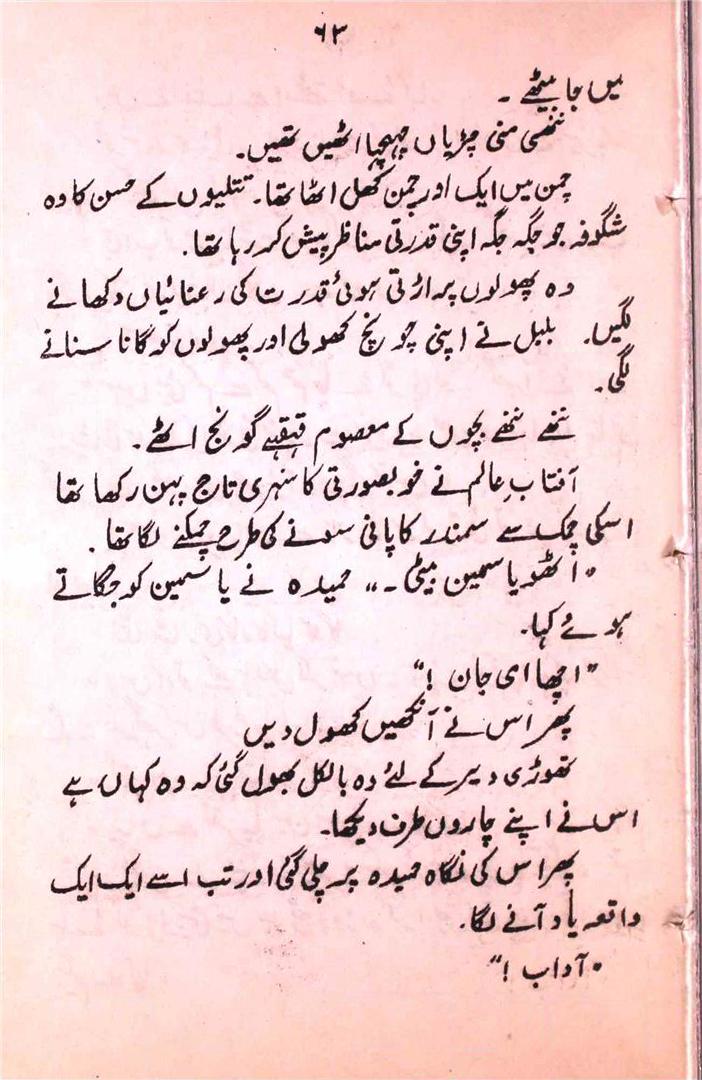 ۶۳
میں جا بیٹھے ۔
ننھی منی چڑیاں چہچہا اٹھیں تھیں۔
چمن میں ایک اور چمن کھل اٹھا تھا۔ تتلیوں کے حسن کا وہ
شگوفہ جو جگہ جگہ اپنی قدرتی مناظر پیش کر رہا تھا۔
وہ پھولوں پر اڑتی ہوئی قدرت کی رعنائیاں دکھانے
لگیں۔ بلبل نے اپنی چونچ کھولی اور پھولوں کو گانا سنانے
لگی۔
ننھے ننھے بچوں کے معصوم قہقہے گونج اٹھے۔
آفتابِ عالم نے خوبصورتی کا سنہری تاج پہن رکھا تھا
اسکی چمک سے سمندر کا پانی سونے کی طرح چمکنے لگا تھا۔
"اٹھو یاسمین بیٹی ۔" حمیدہ نے یاسمین کو جگاتے
ہوئے کہا۔
"اچھا امی جان !"
پھر اس نے آنکھیں کھول دیں
تھوڑی دیر کے لئے وہ بالکل بھول گئی کہ وہ کہاں ہے
اس نے اپنے چاروں طرف دیکھا۔
پھر اس کی نگاہ حمیدہ پر چلی گئی اور تب اسے ایک ایک
واقعہ یاد آنے لگا۔
"آداب !"